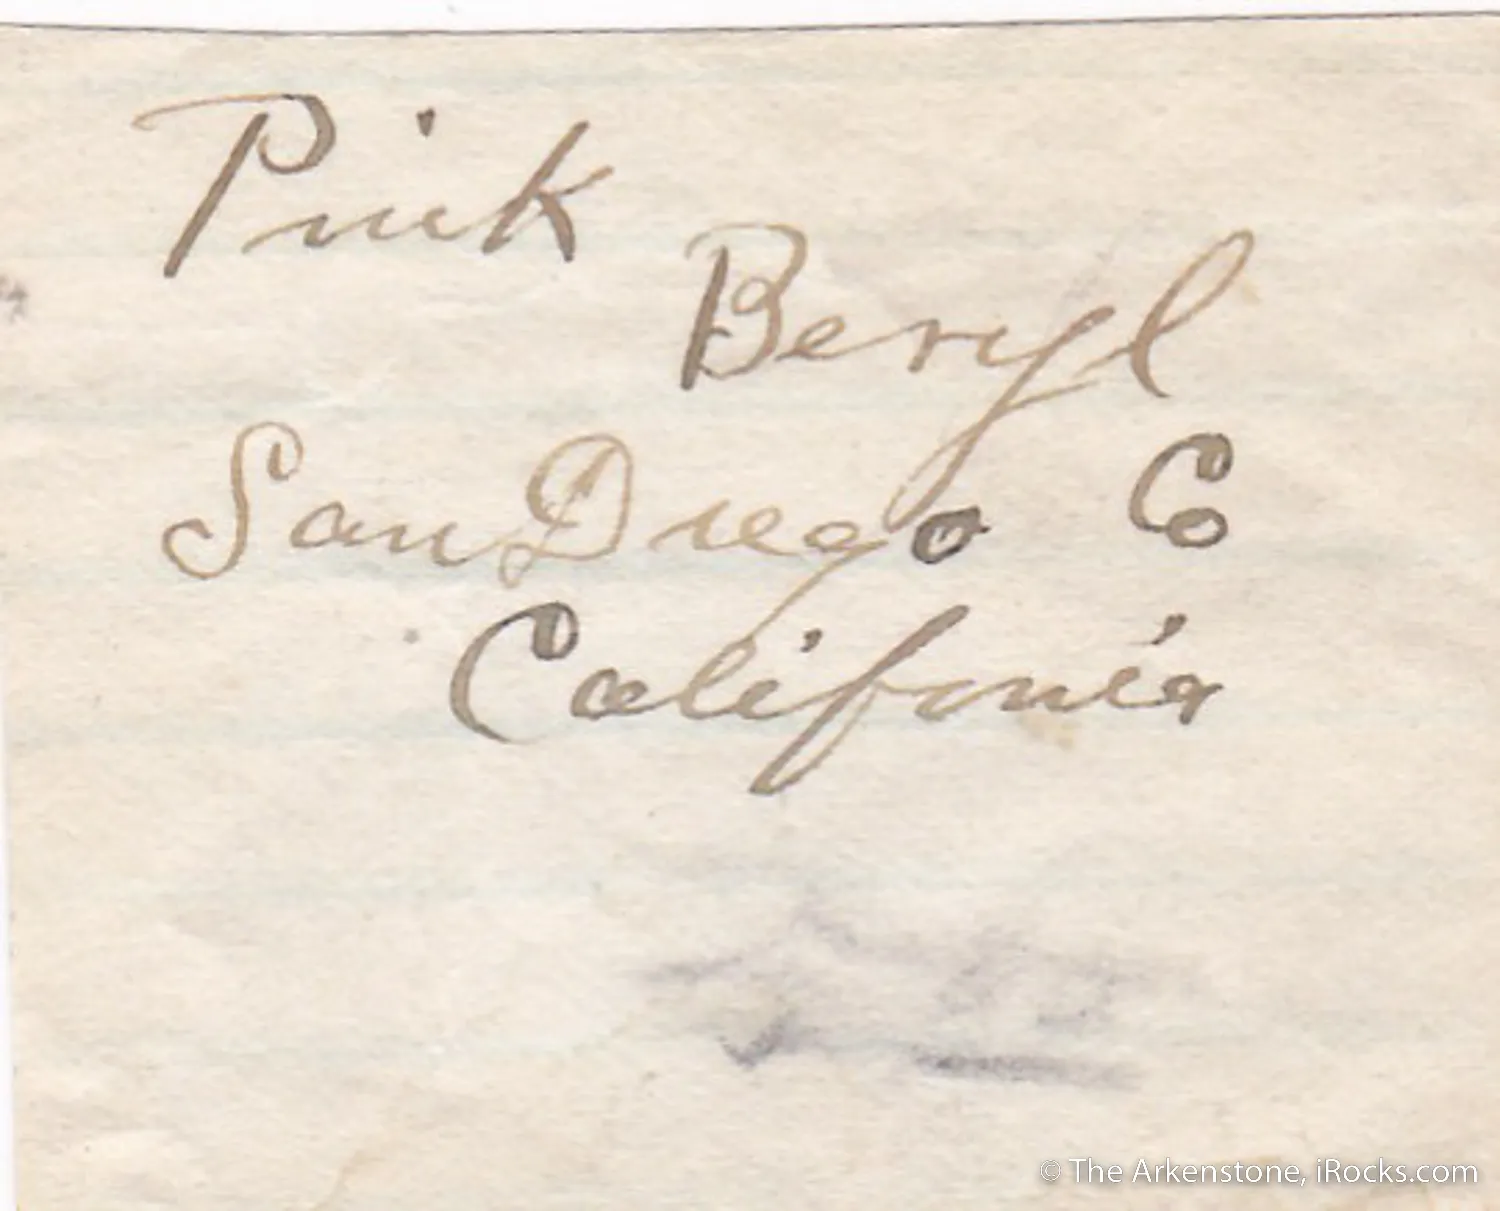 Pink
Beryl
San Diego Co
California
© The Arkenstone, iRocks.com